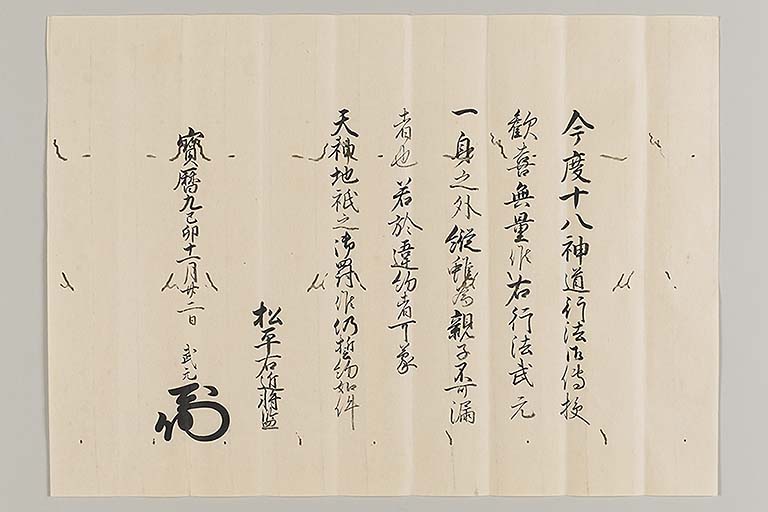 今度十八神道行法御傳授
歓喜無量候右行法武元
一身之外縦雖為親子不可漏
者也若於違約者可蒙
天神地祇之御罸候仍誓約如件
松平右近将監
寳暦九己卯十一月廿二日 武元